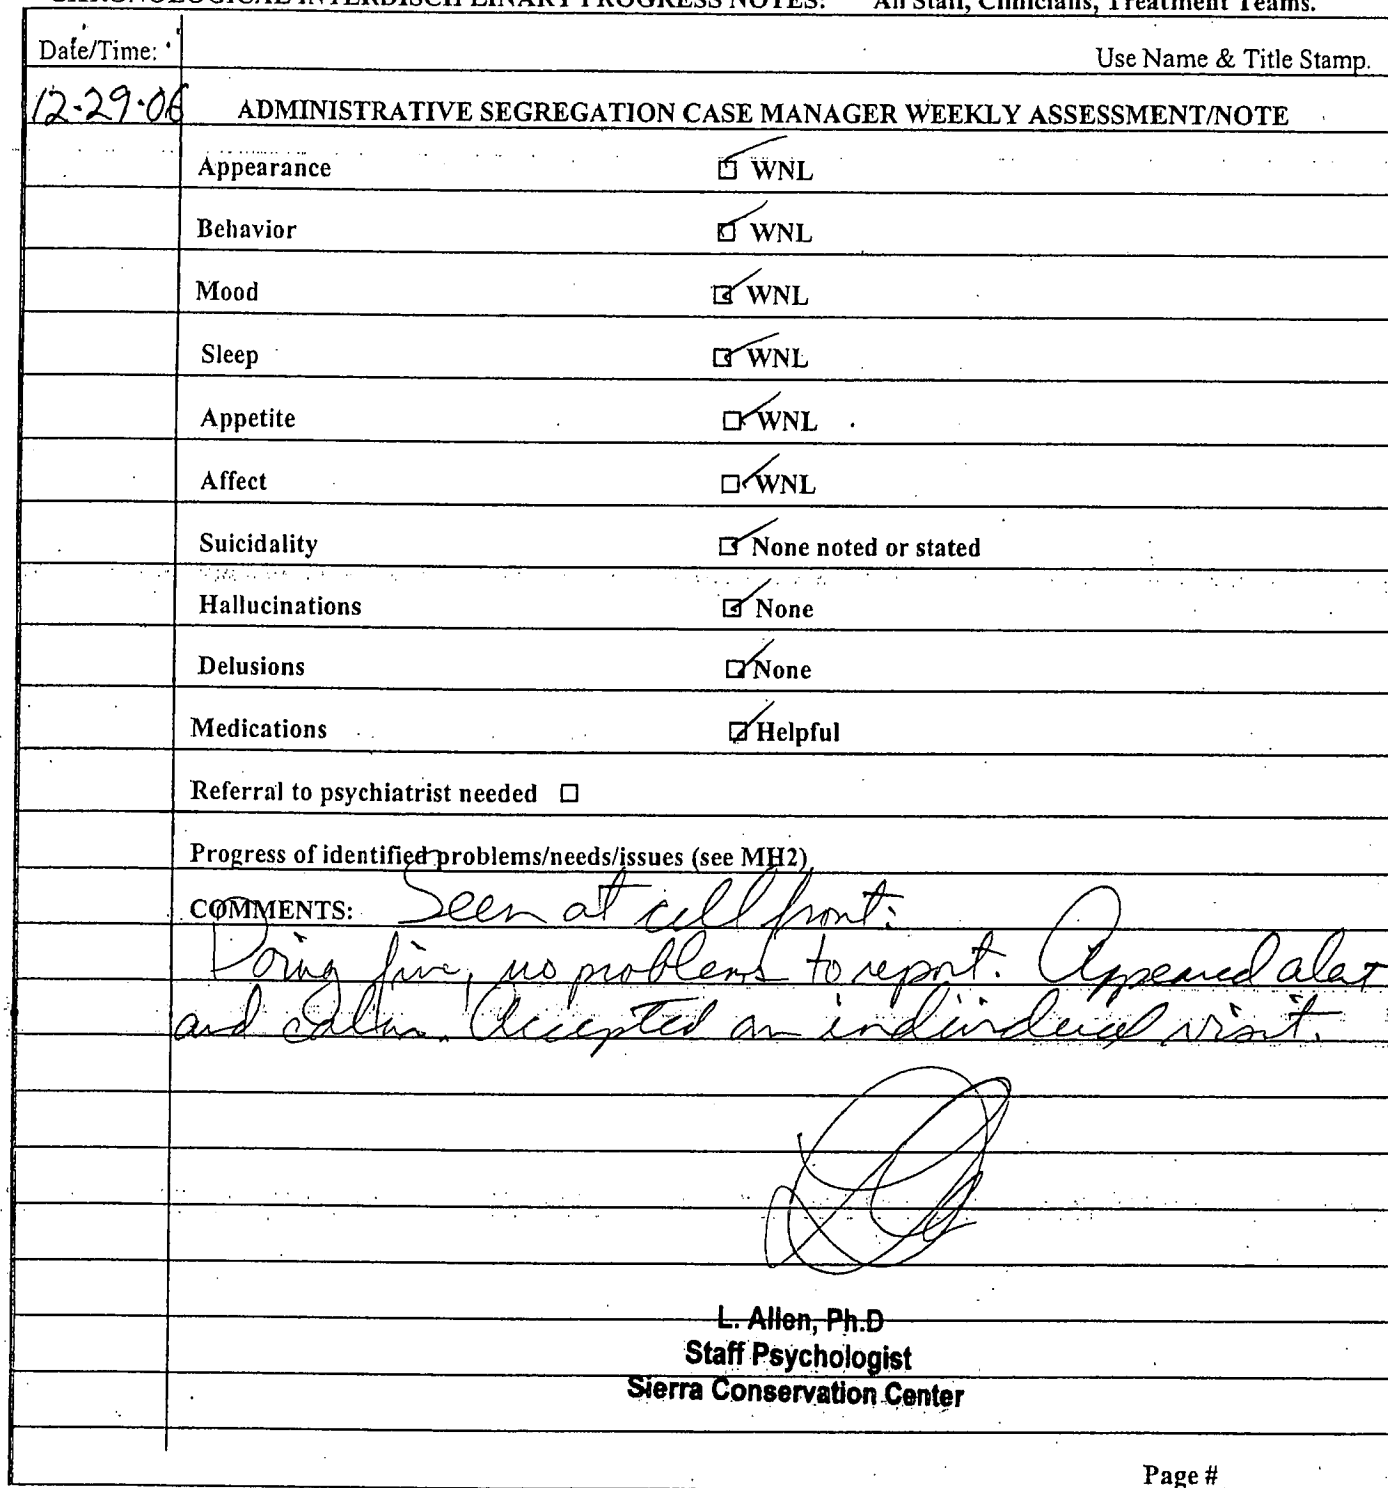 CHRONOLOGICAL INTERDISCIPLINARY PROGRESS NOTES: All Staff, Clinicians, Treatment Teams.
Date/Time:
Use Name & Title Stamp.
12-29-06 ADMINISTRATIVE SEGREGATION CASE MANAGER WEEKLY ASSESSMENT/NOTE
Appearance WNL
Behavior WNL
Mood WNL
Sleep WNL
Appetite WNL
Affect WNL
Suicidality None noted or stated
Hallucinations None
Delusions None
Medications Helpful
Referral to psychiatrist needed
Progress of identified problems/needs/issues (see MH2)
COMMENTS: Seen at cell front:
Doing fine, no problems to report. Appeared alert
and calm. Accepted an individual visit.
L. Allen, Ph.D
Staff Psychologist
Sierra Conservation Center
Page #